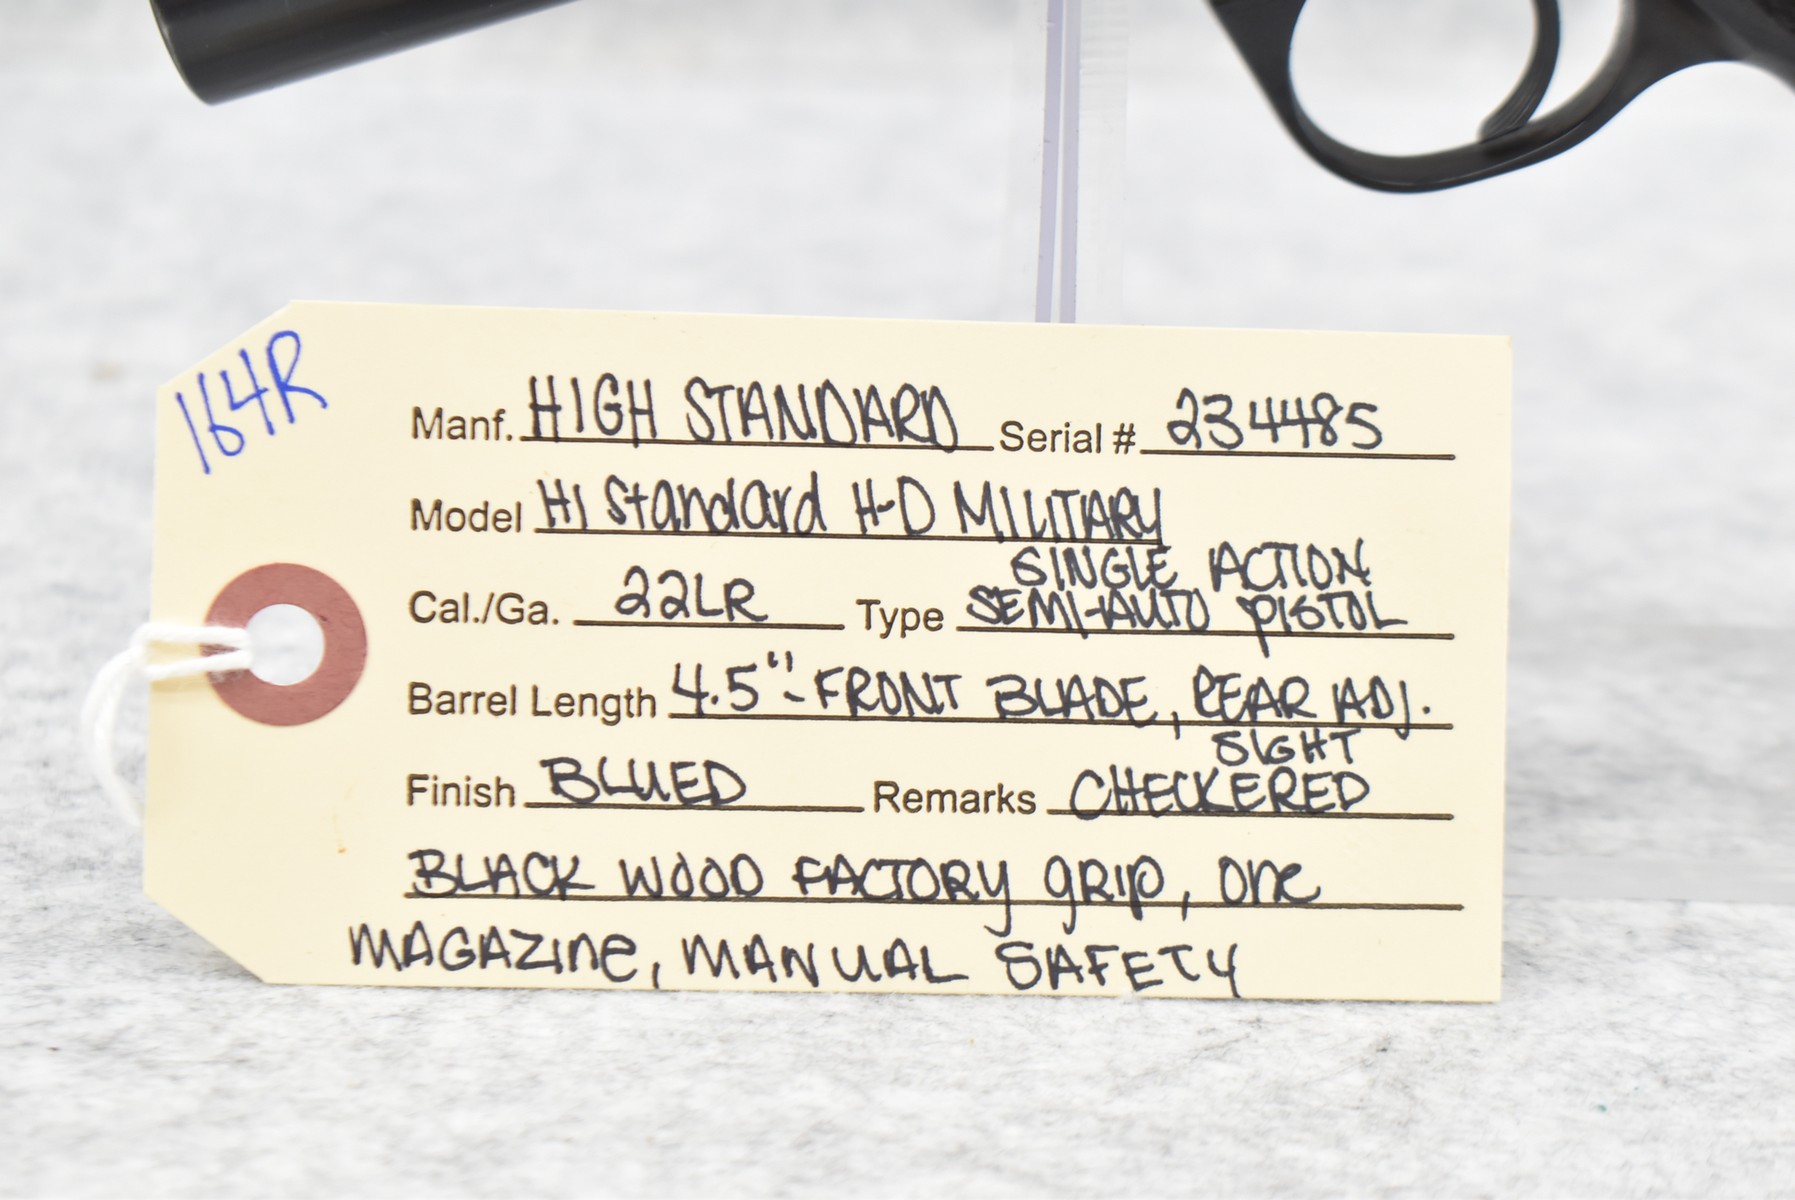 164R
Manf. HIGH STANDARD Serial # 234485
Model HI Standard H-D MILITARY
SINGLE ACTION
Cal./Ga. 22LR Type SEMI-AUTO PISTOL
Barrel Length 4.5"- FRONT BLADE, REAR ADJ.
SIGHT
Finish BLUED Remarks CHECKERED
BLACK WOOD FACTORY GRIP, One
MAGAZine, MANUAL SAFETY